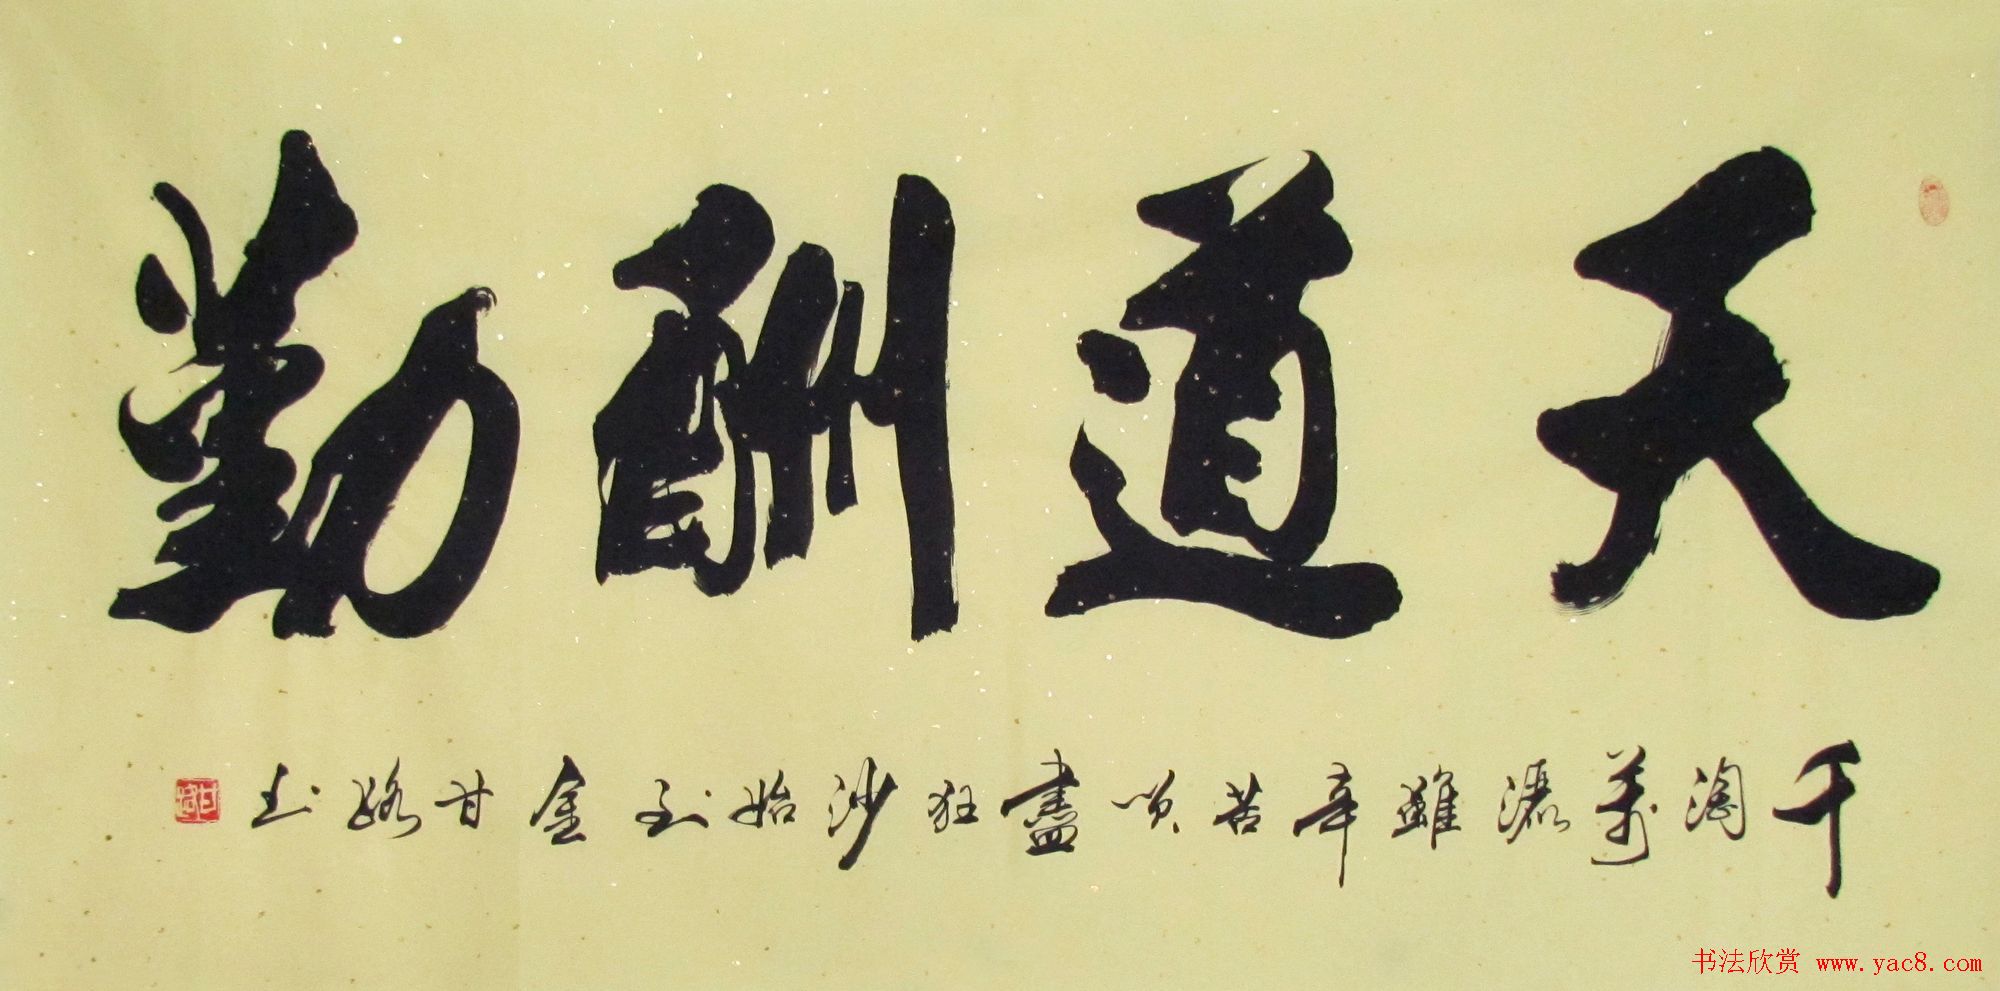 天道酬勤
千淘萬漉雖辛苦吹盡狂沙始到金甘路书
书法欣赏 www.yac8.com